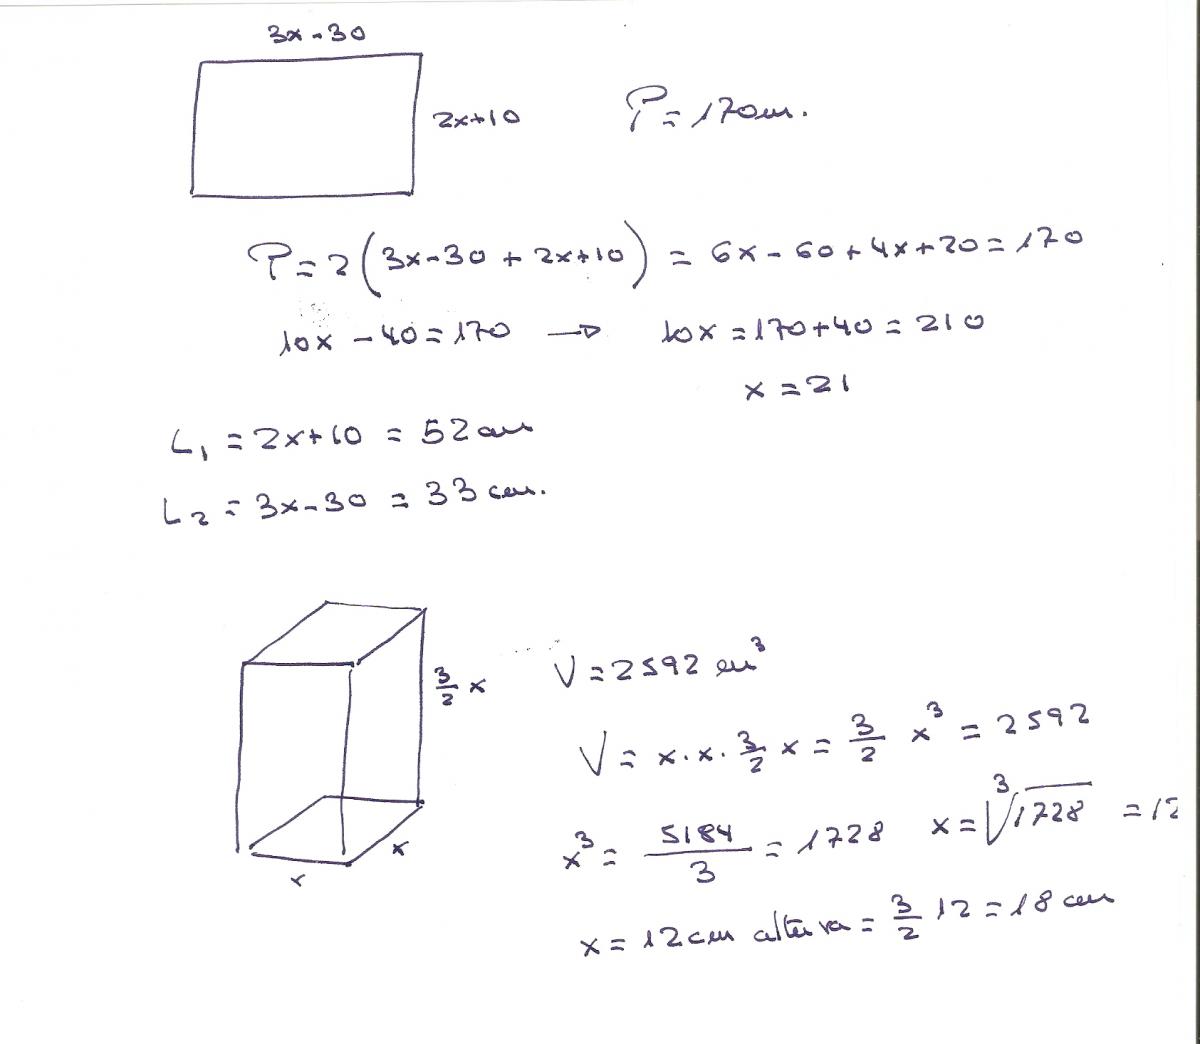 3x-30
2x+10
P=170cm.
P=2(3x-30+2x+10)=6x-60+4x+20=170
10x-40=170 → 10x=170+40=210
x=21
L₁=2x+10=52cm
L₂=3x-30=33cm.
3/2 x
V=2592cm³
V=x·x·3/2 x=3/2 x³=2592
x
x
x³=5184/3=1728 x=∛1728=12
x=12cm altura=3/2 12=18cm